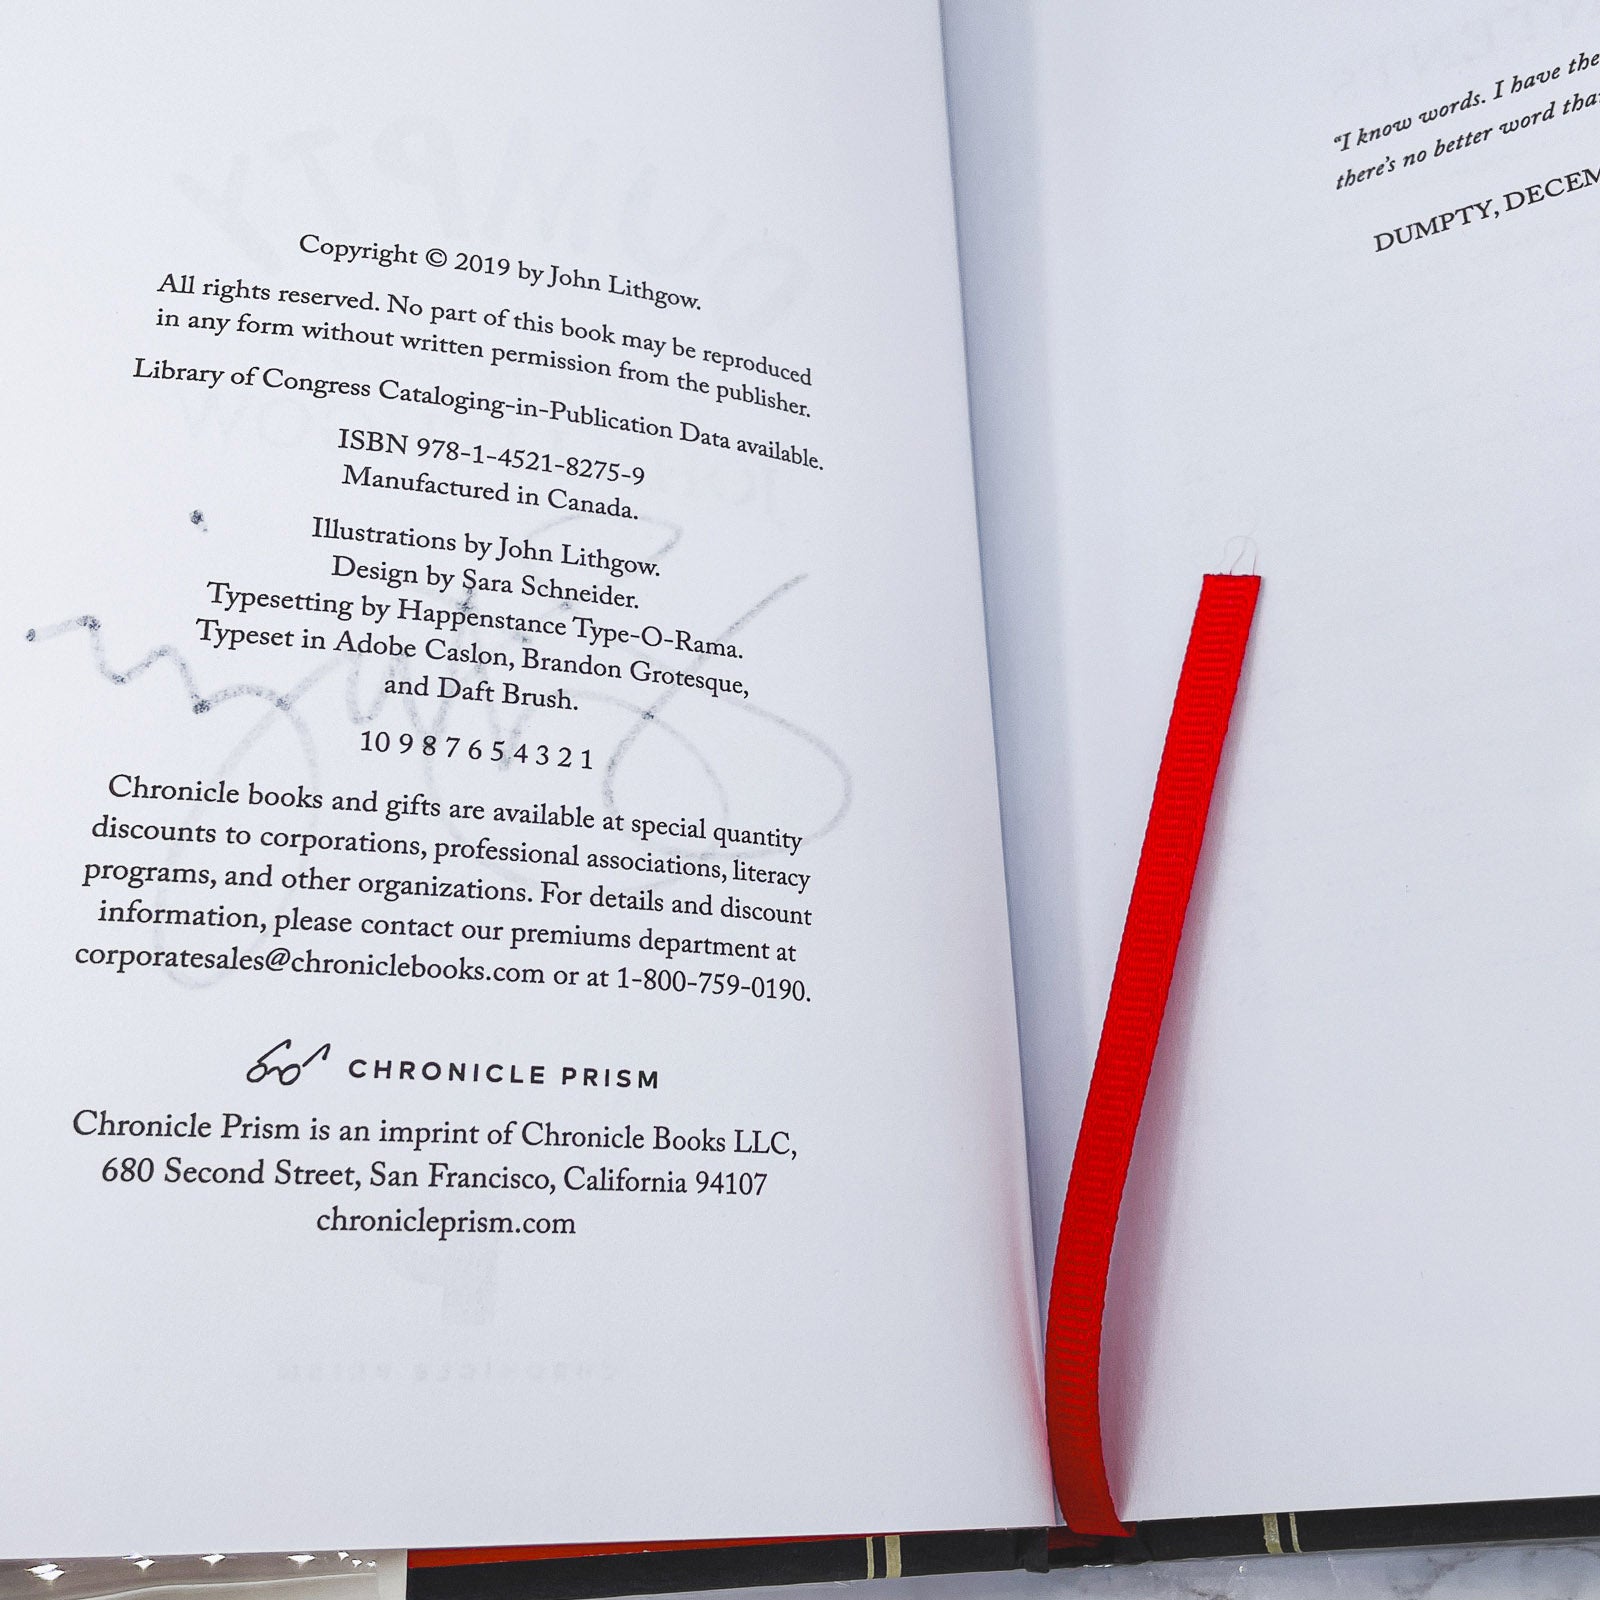 Copyright © 2019 by John Lithgow.
All rights reserved. No part of this book may be reproduced
in any form without written permission from the publisher.
Library of Congress Cataloging-in-Publication Data available.
ISBN 978-1-4521-8275-9
Manufactured in Canada.
Illustrations by John Lithgow.
Design by Sara Schneider.
Typesetting by Happenstance Type-O-Rama.
Typeset in Adobe Caslon, Brandon Grotesque,
and Daft Brush.
10 9 8 7 6 5 4 3 2 1
Chronicle books and gifts are available at special quantity
discounts to corporations, professional associations, literacy
programs, and other organizations. For details and discount
information, please contact our premiums department at
corporatesales@chroniclebooks.com or at 1-800-759-0190.
CHRONICLE PRISM
Chronicle Prism is an imprint of Chronicle Books LLC,
680 Second Street, San Francisco, California 94107
chronicleprism.com
“I know words. I have the
there’s no better word
DUMPTY,